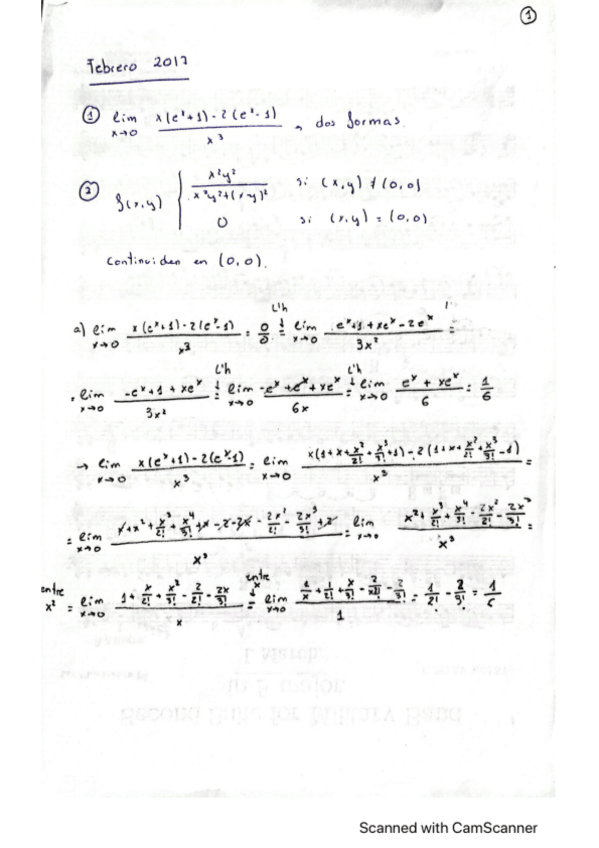 1
Febrero 2017
① lim x→0 x(e^x+1)-2(e^x-1) / x^3 , dos formas.
② f(x,y) { x^2y^2 / x^2y^2+(x-y)^2 si (x,y) ≠ (0,0)
0 si (x,y) = (0,0)
Continuidad en (0,0).
a) lim x→0 x(e^x+1)-2(e^x-1) / x^3 = 0/0 = L'h lim x→0 e^x+1+xe^x-2e^x / 3x^2 =
= lim x→0 -e^x+1+xe^x / 3x^2 = L'h lim x→0 -e^x+e^x+xe^x / 6x = L'h lim x→0 e^x+xe^x / 6 = 1/6
→ lim x→0 x(e^x+1)-2(e^x-1) / x^3 = lim x→0 x(1+x+x^2/2!+x^3/3!+1)-2(1+x+x^2/2!+x^3/3!-1) / x^3 =
= lim x→0 x+x^2+x^3/2!+x^4/3!+x-2-2x-2x^2/2!-2x^3/3!+2 / x^3 = lim x→0 x^2+x^3/2!+x^4/3!-2x^2/2!-2x^3/3! / x^3 =
entre x^2 = lim x→0 1+x/2!+x^2/3!-2/2!-2x/3! / x = entre x lim x→0 1/x+1/2!+x/3!-2/x2!-2/3! / 1 = 1/2!-2/3! = 1/6
Second Suite for Military Band
in F major
1. March
Scanned with CamScanner